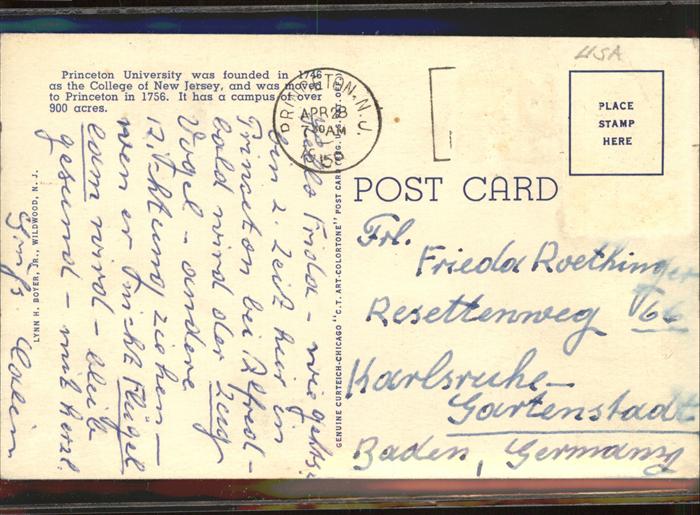 Princeton University was founded in 1746
as the College of New Jersey, and was moved
to Princeton in 1756. It has a campus of over
900 acres.
LYNN H. BOYER, JR., WILDWOOD, N. J.
GENUINE CURTEICH-CHICAGO "C. T. ART-COLORTONE" POST CARD
PRINCETON, N.J.
APR 28
7 30 AM
195
USA
PLACE
STAMP
HERE
POST CARD
Frieda – wie gehts?
z. Zeit hier in
Princeton bei Alfred –
bald wird der Zug
Vogel – andere
ziehen –
wen er nicht Flügel
wird – bleib
gesund – mit herzl.
Frl.
Frieda Roethinger
Resettenweg 66
Karlsruhe –
Gartenstadt
Baden, Germany